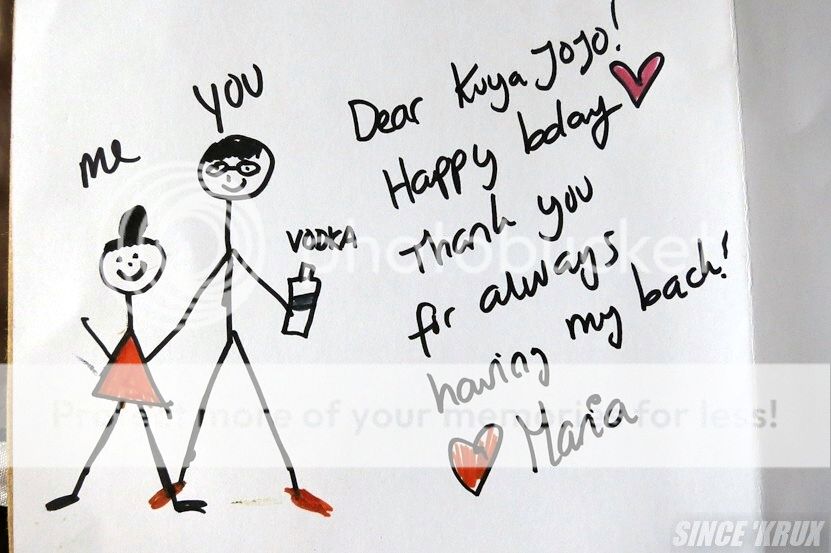 me
YOU
VODKA
Dear Kuya JOJO!
Happy bday
Thank you
for always
having my back!
Maria
photobucket
Protect more of your memories for less!
SINCE 'KRUX